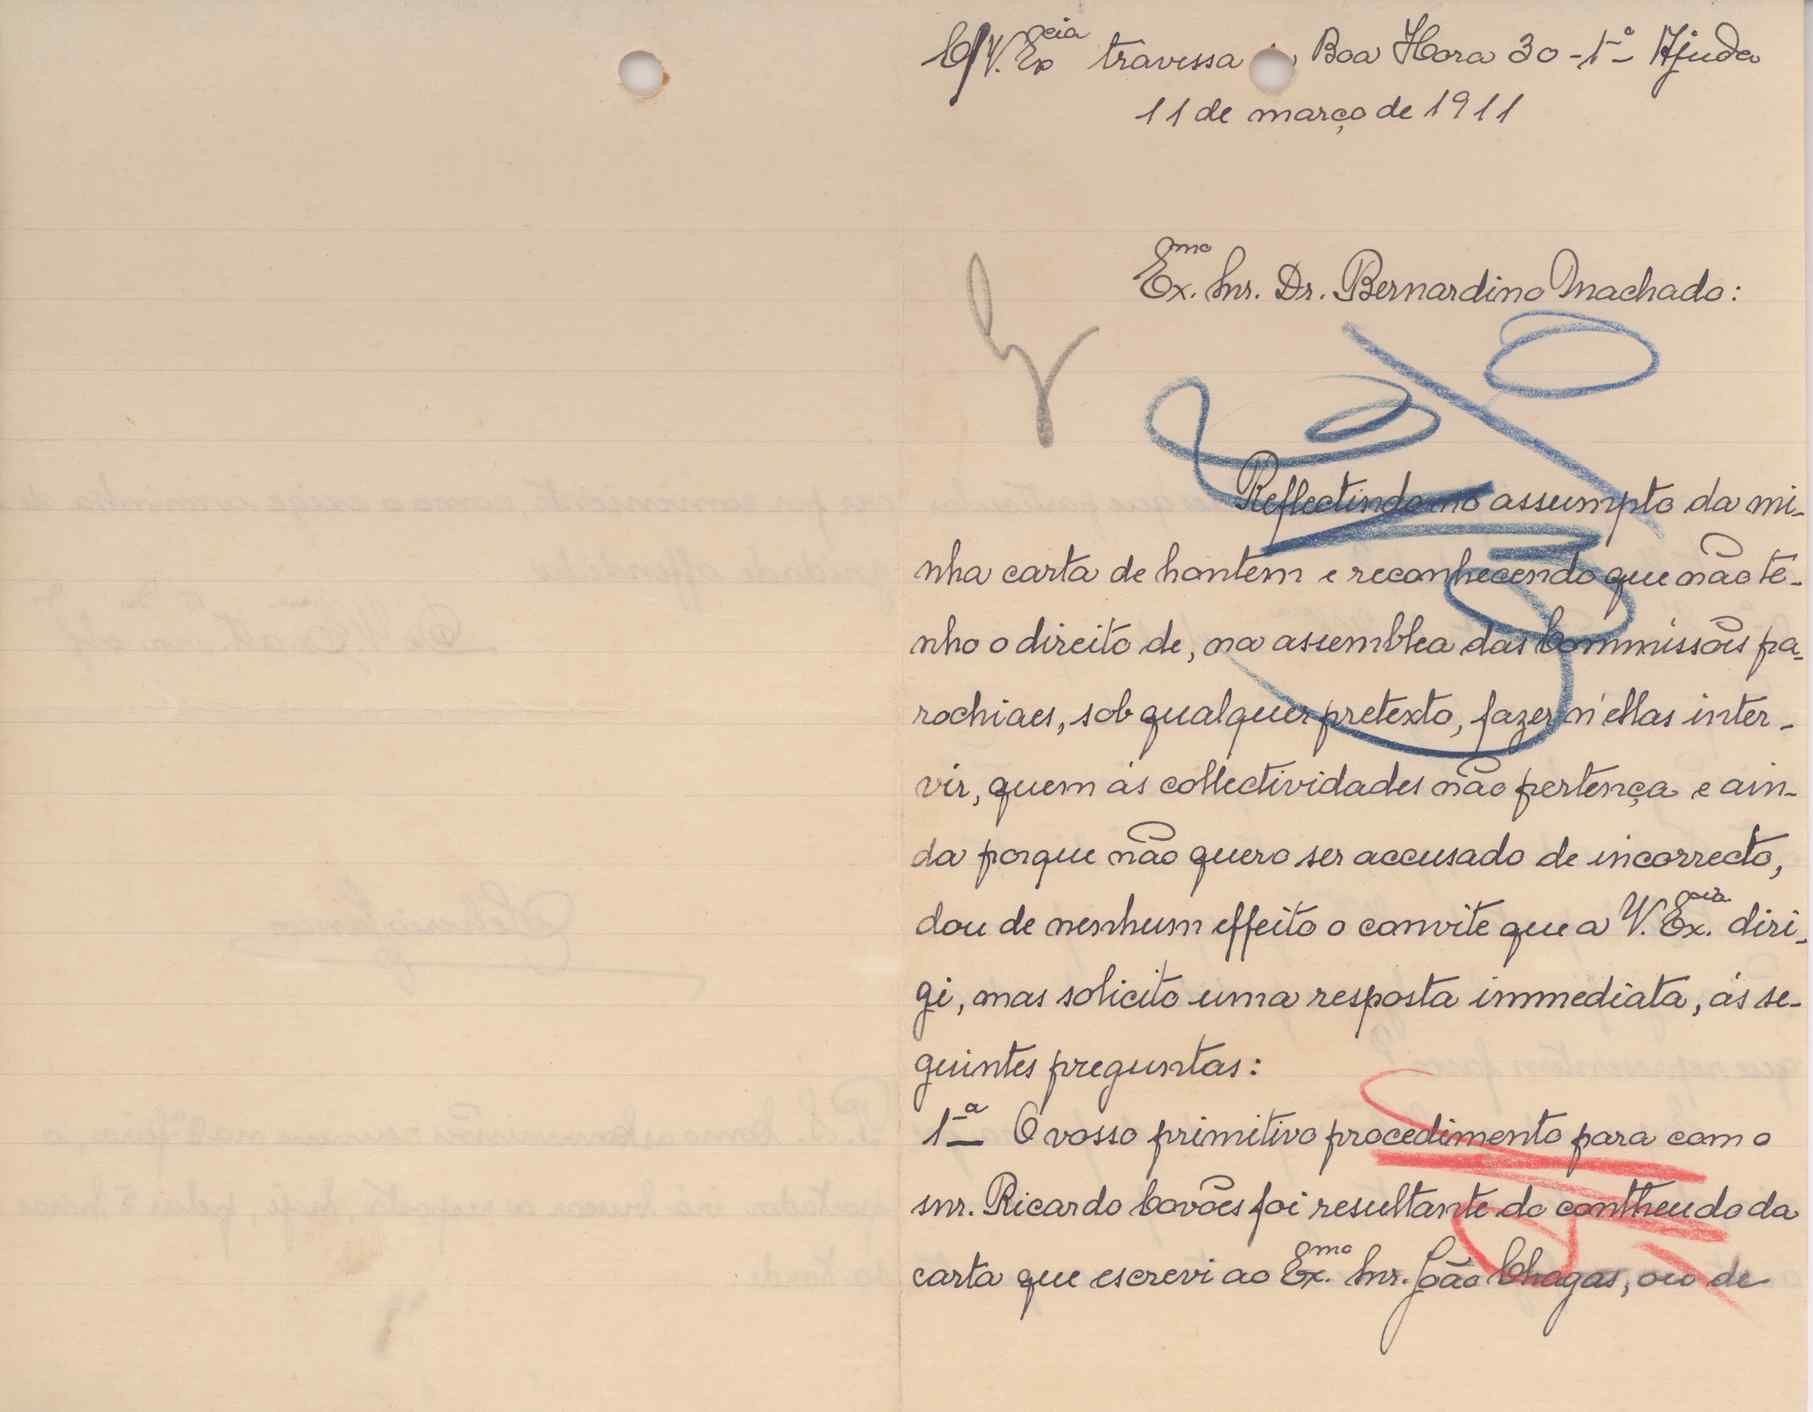 C/V. Ex.cia travessa Boa Hora 30-1º Ajuda
11 de março de 1911
Ex.mo Snr. Dr. Bernardino Machado:
Reflectindo no assumpto da mi-
nha carta de hontem e reconhecendo que não te-
nho o direito de, na assemblea das Commissões pa-
rochiaes, sob qualquer pretexto, fazer n'ellas inter-
vir, quem ás collectividades não pertença e ain-
da porque não quero ser accusado de incorrecto,
dou de nenhum effeito o convite que a V. Ex.cia diri-
gi, mas solicito uma resposta immediata, ás se-
guintes preguntas:
1ª O vosso primitivo procedimento para com o
snr. Ricardo Covões foi resultante do contheudo da
carta que escrevi ao Ex.mo Snr. João Chagas, ou de